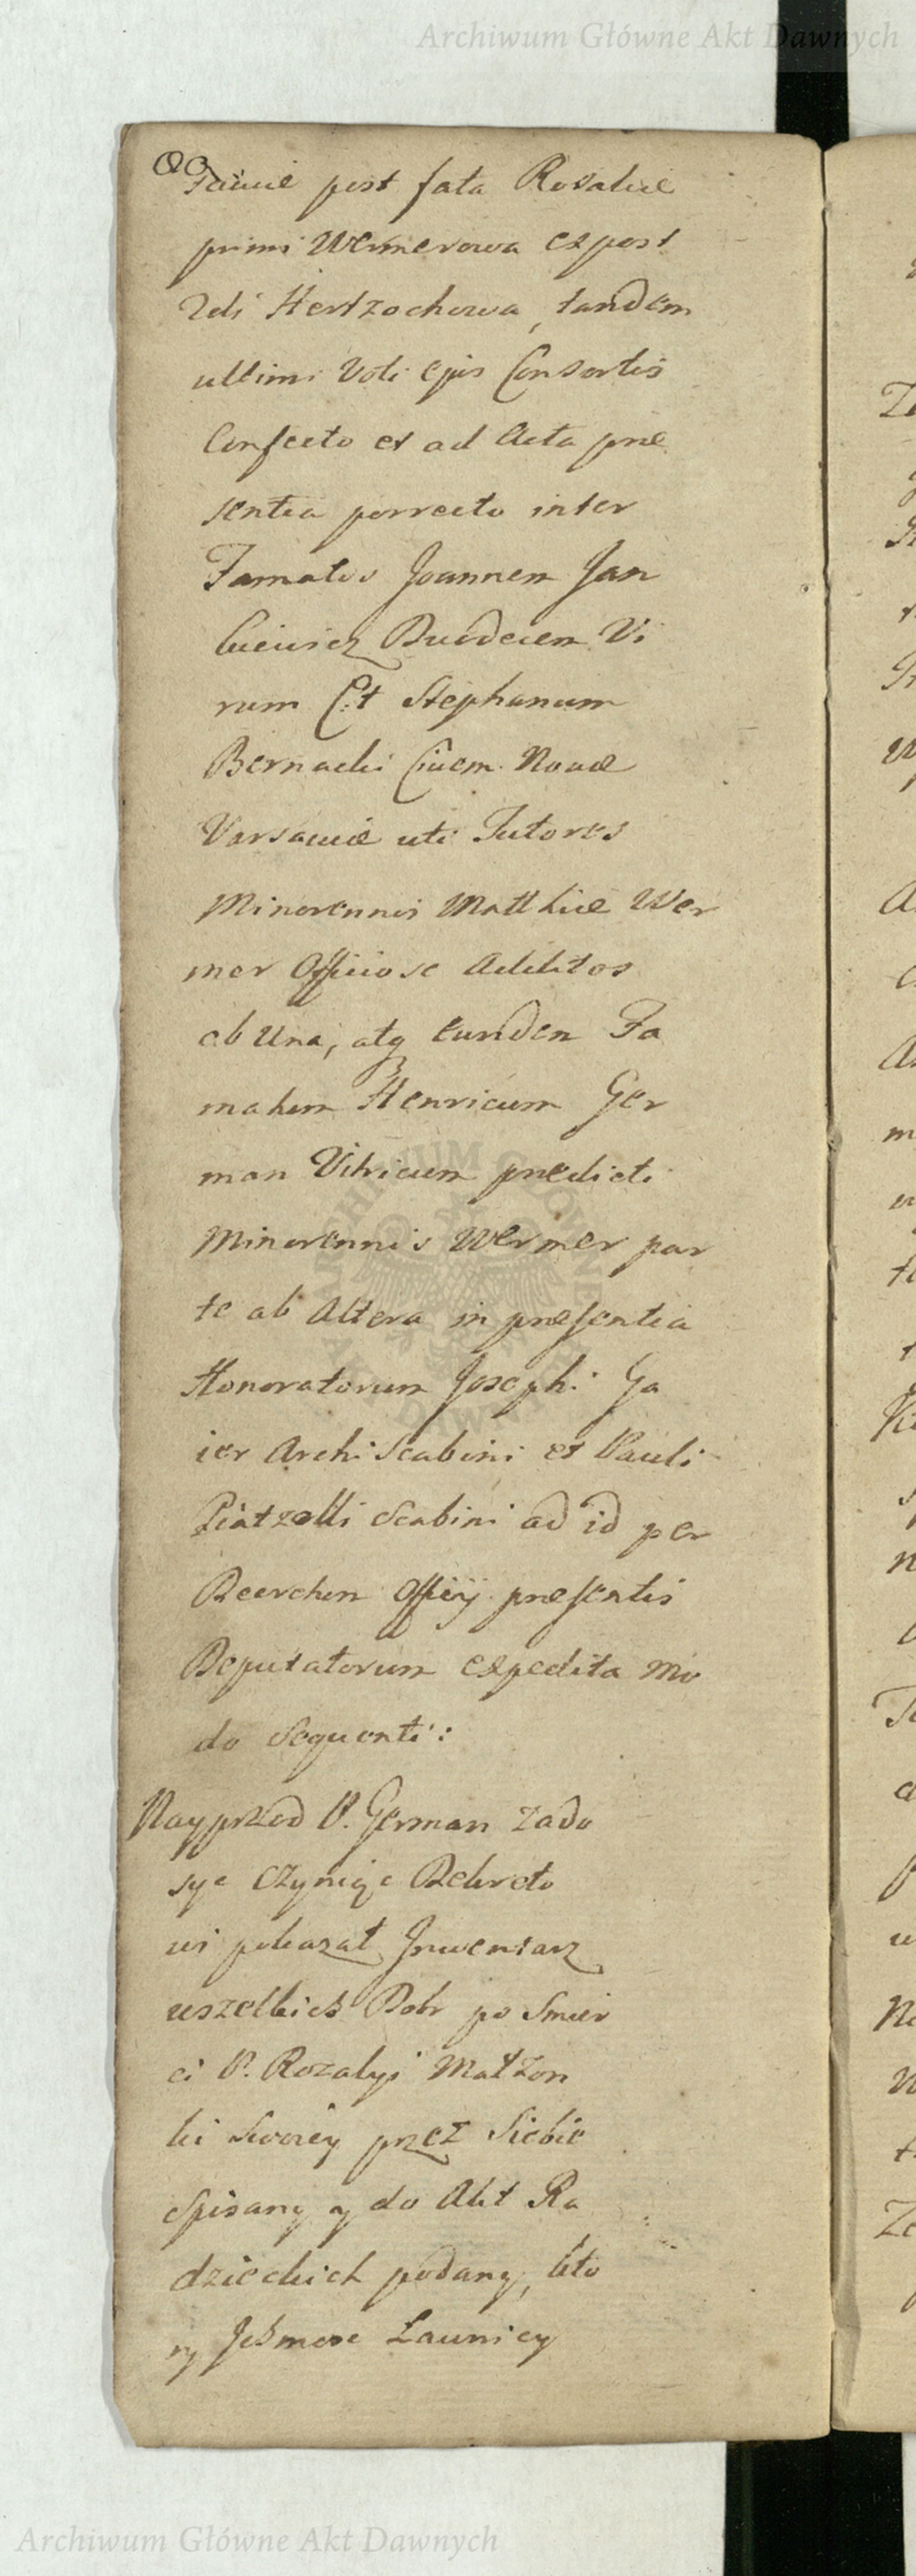 Archiwum Główne Akt Dawnych
post fata Rosaliæ
primi Wermerowa expost
2di Hertzochowa, tandem
ultimi Voti ejus Consortis
Confecto et ad Acta præ
sentia porrecto inter
Famatos Joannem Jan
kiewicz Consulem Vi
rum Et Stephanum
Bernacki Civem Novæ
Varsaviæ uti Tutores
Minorennis Matthiæ Wer
mer Officiose Additos
ab Una, atq eunden Fa
matum Henricum Ger
man Vitricum prædicti
Minorennis Wermer par
te ab Altera in præsentia
Honoratorum Josephi Ga
ier Archi Scabini et Pauli
Piatzelli Scabini ad id per
Decretum Officij præsentis
Deputatorum expedita Mo
do Sequenti:
Nayprzod P. German Zado
syc Czyniąc Dekreto
wi pokazał Jnwentarz
wszelkich Dobr po Smier
ci P. Rozalyi Małzon
ki Swoiey przez Siebie
Spisany y do Akt Ra
dzieckich podany, kto
ry Jchmosc Ławnicy
Archiwum Główne Akt Dawnych